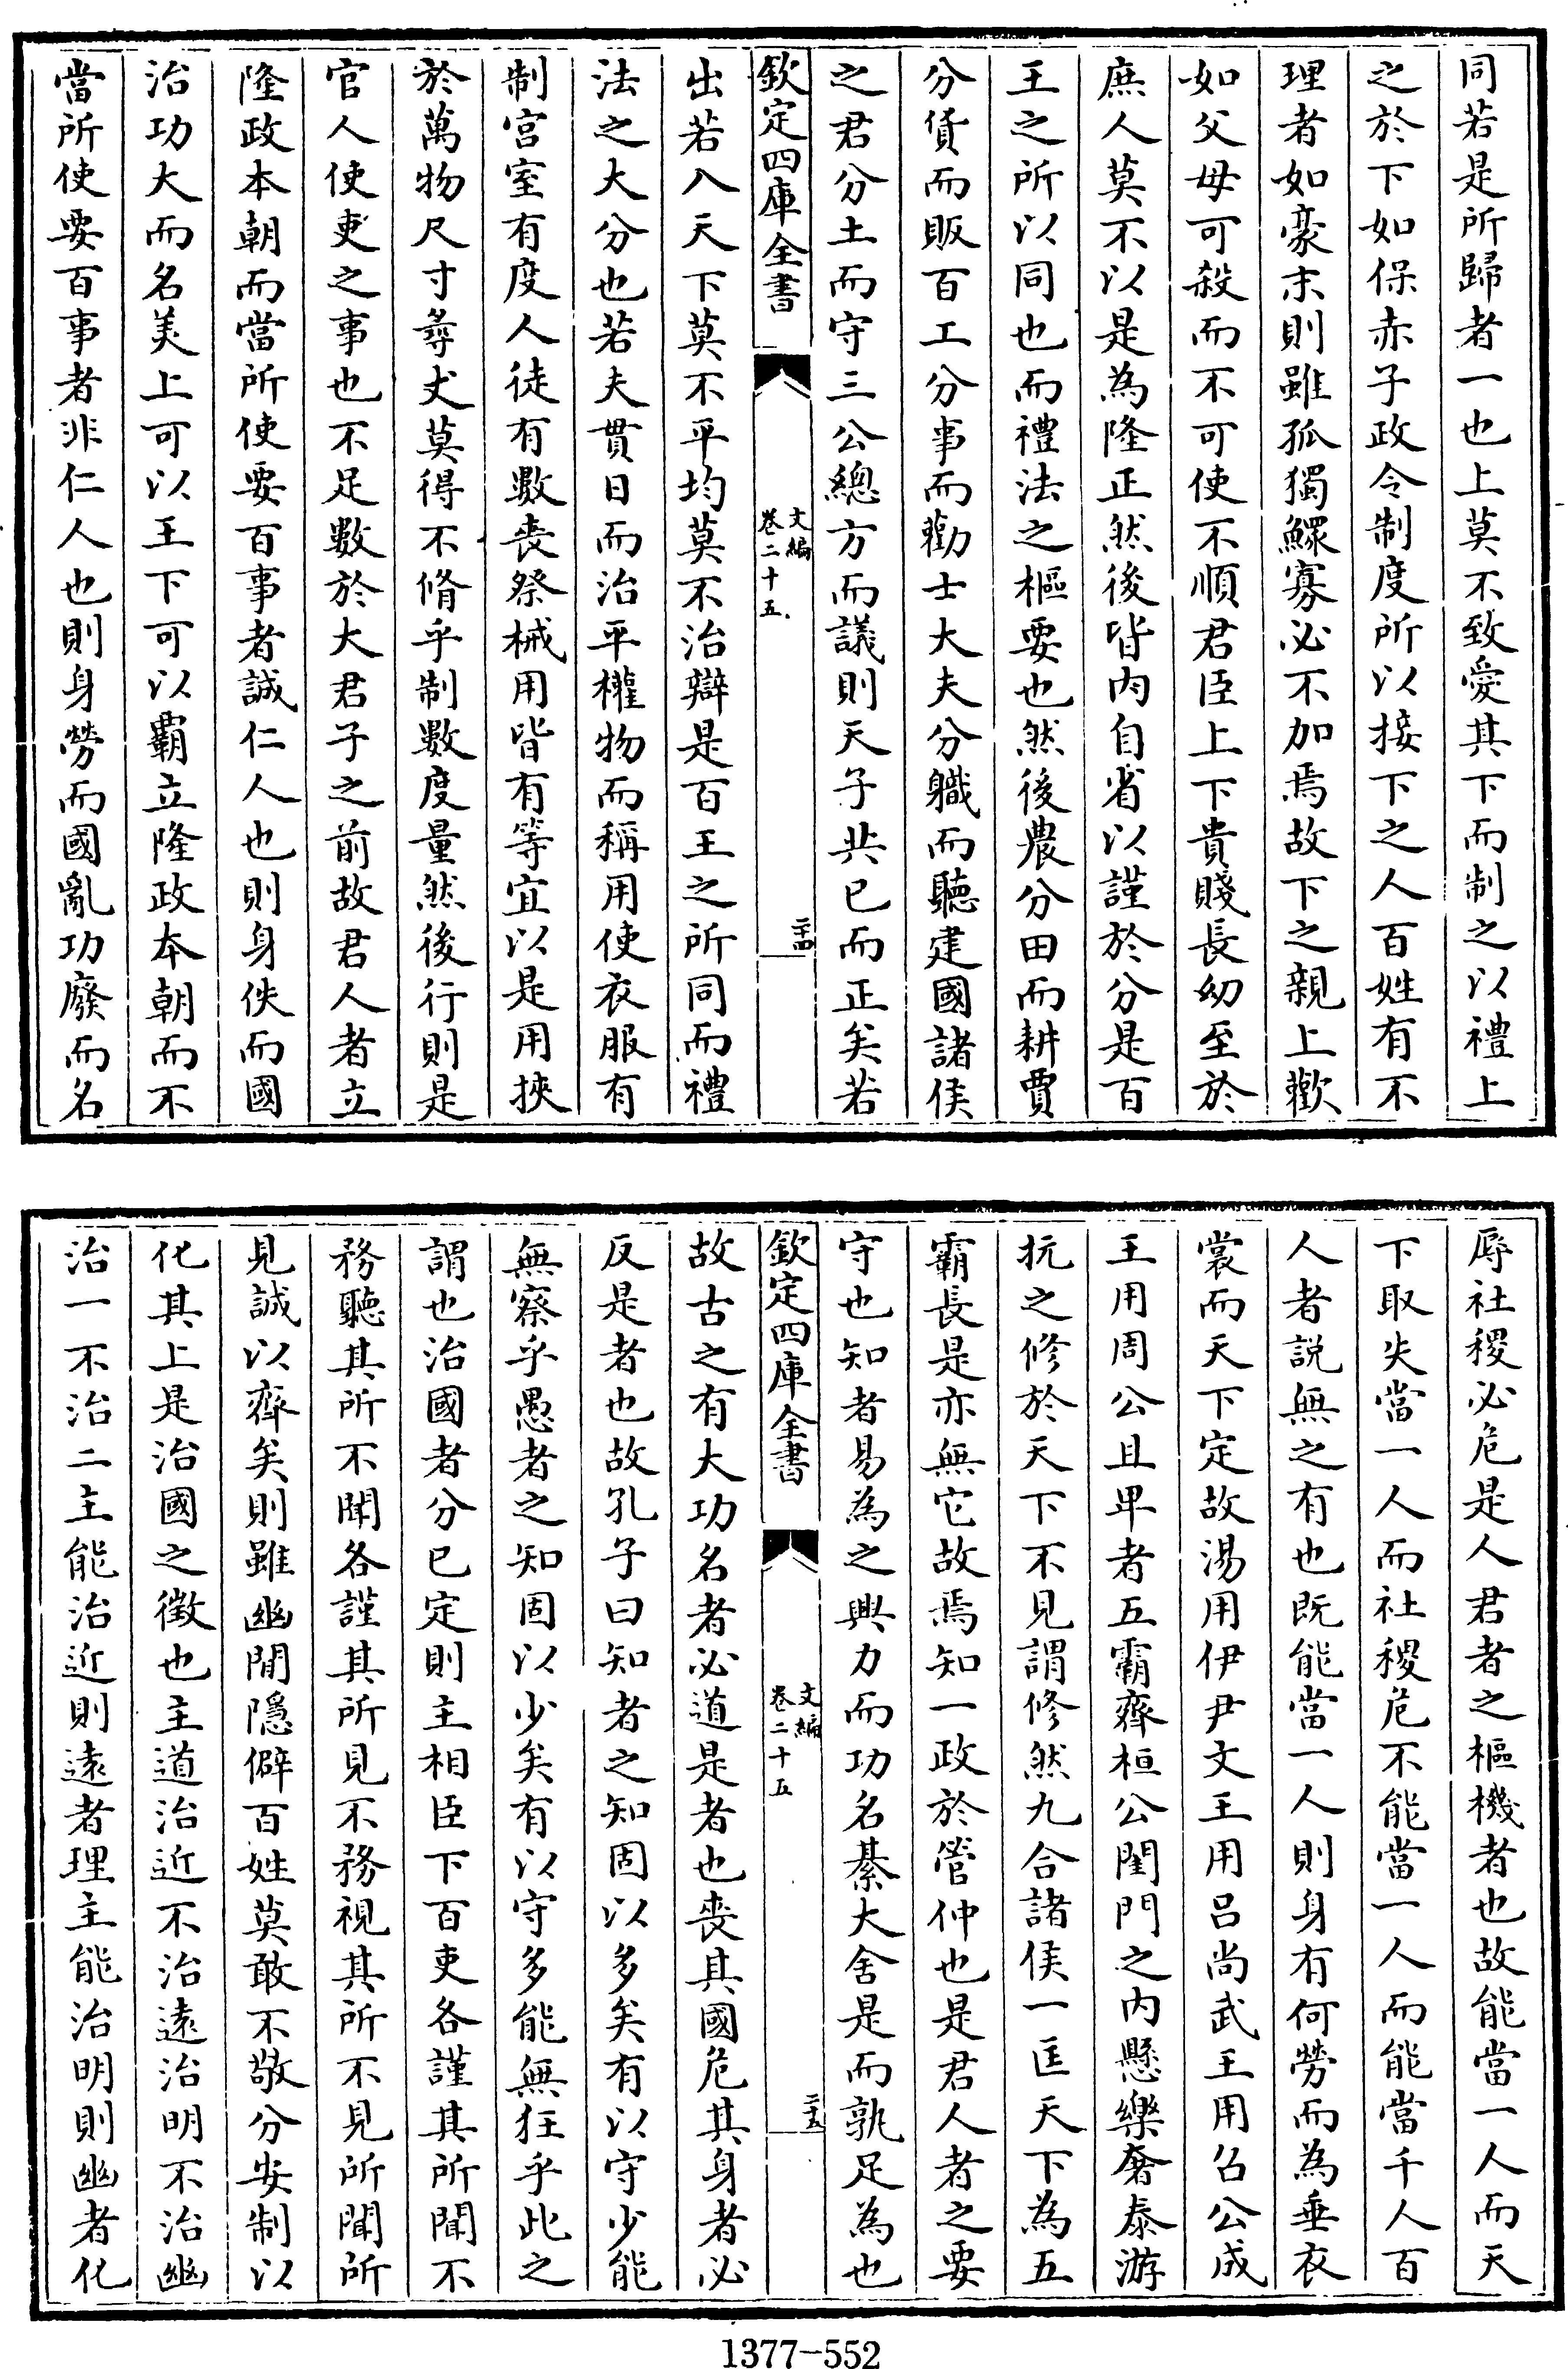 同若是所歸者一也上莫不致愛其下而制之以禮上
之於下如保赤子政令制度所以接下之人百姓有不
理者如豪末則雖孤獨鰥寡必不加焉故下之親上歡
如父母可殺而不可使不順君臣上下貴賤長幼至於
庶人莫不以是為隆正然後皆内自省以謹於分是百
王之所以同也而禮法之樞要也然後農分田而耕賈
分貨而販百工分事而勸士大夫分職而聽建國諸侯
之君分土而守三公總方而議則天子共已而正矣若
欽定四庫全書
文編
卷二十五
二十四
出若入天下莫不平均莫不治辯是百王之所同而禮
法之大分也若夫貫日而治平權物而稱用使衣服有
制宮室有度人徒有數喪祭械用皆有等宜以是用挾
於萬物尺寸尋丈莫得不脩乎制數度量然後行則是
官人使吏之事也不足數於大君子之前故君人者立
隆政本朝而當所使要百事者誠仁人也則身佚而國
治功大而名美上可以王下可以霸立隆政本朝而不
當所使要百事者非仁人也則身勞而國亂功廢而名
辱社稷必危是人君者之樞機者也故能當一人而天
下取失當一人而社稷危不能當一人而能當千人百
人者説無之有也既能當一人則身有何勞而為垂衣
裳而天下定故湯用伊尹文王用吕尚武王用召公成
王用周公且卑者五霸齊桓公閨門之内懸樂奢泰游
抏之修於天下不見謂修然九合諸侯一匡天下為五
霸長是亦無它故焉知一政於管仲也是君人者之要
守也知者易為之興力而功名綦大舍是而孰足為也
欽定四庫全書
文編
卷二十五
二十五
故古之有大功名者必道是者也喪其國危其身者必
反是者也故孔子曰知者之知固以多矣有以守少能
無察乎愚者之知固以少矣有以守多能無狂乎此之
謂也治國者分已定則主相臣下百吏各謹其所聞不
務聽其所不聞各謹其所見不務視其所不見所聞所
見誠以齊矣則雖幽閒隱僻百姓莫敢不敬分安制以
化其上是治國之徵也主道治近不治遠治明不治幽
治一不治二主能治近則遠者理主能治明則幽者化
1377-552